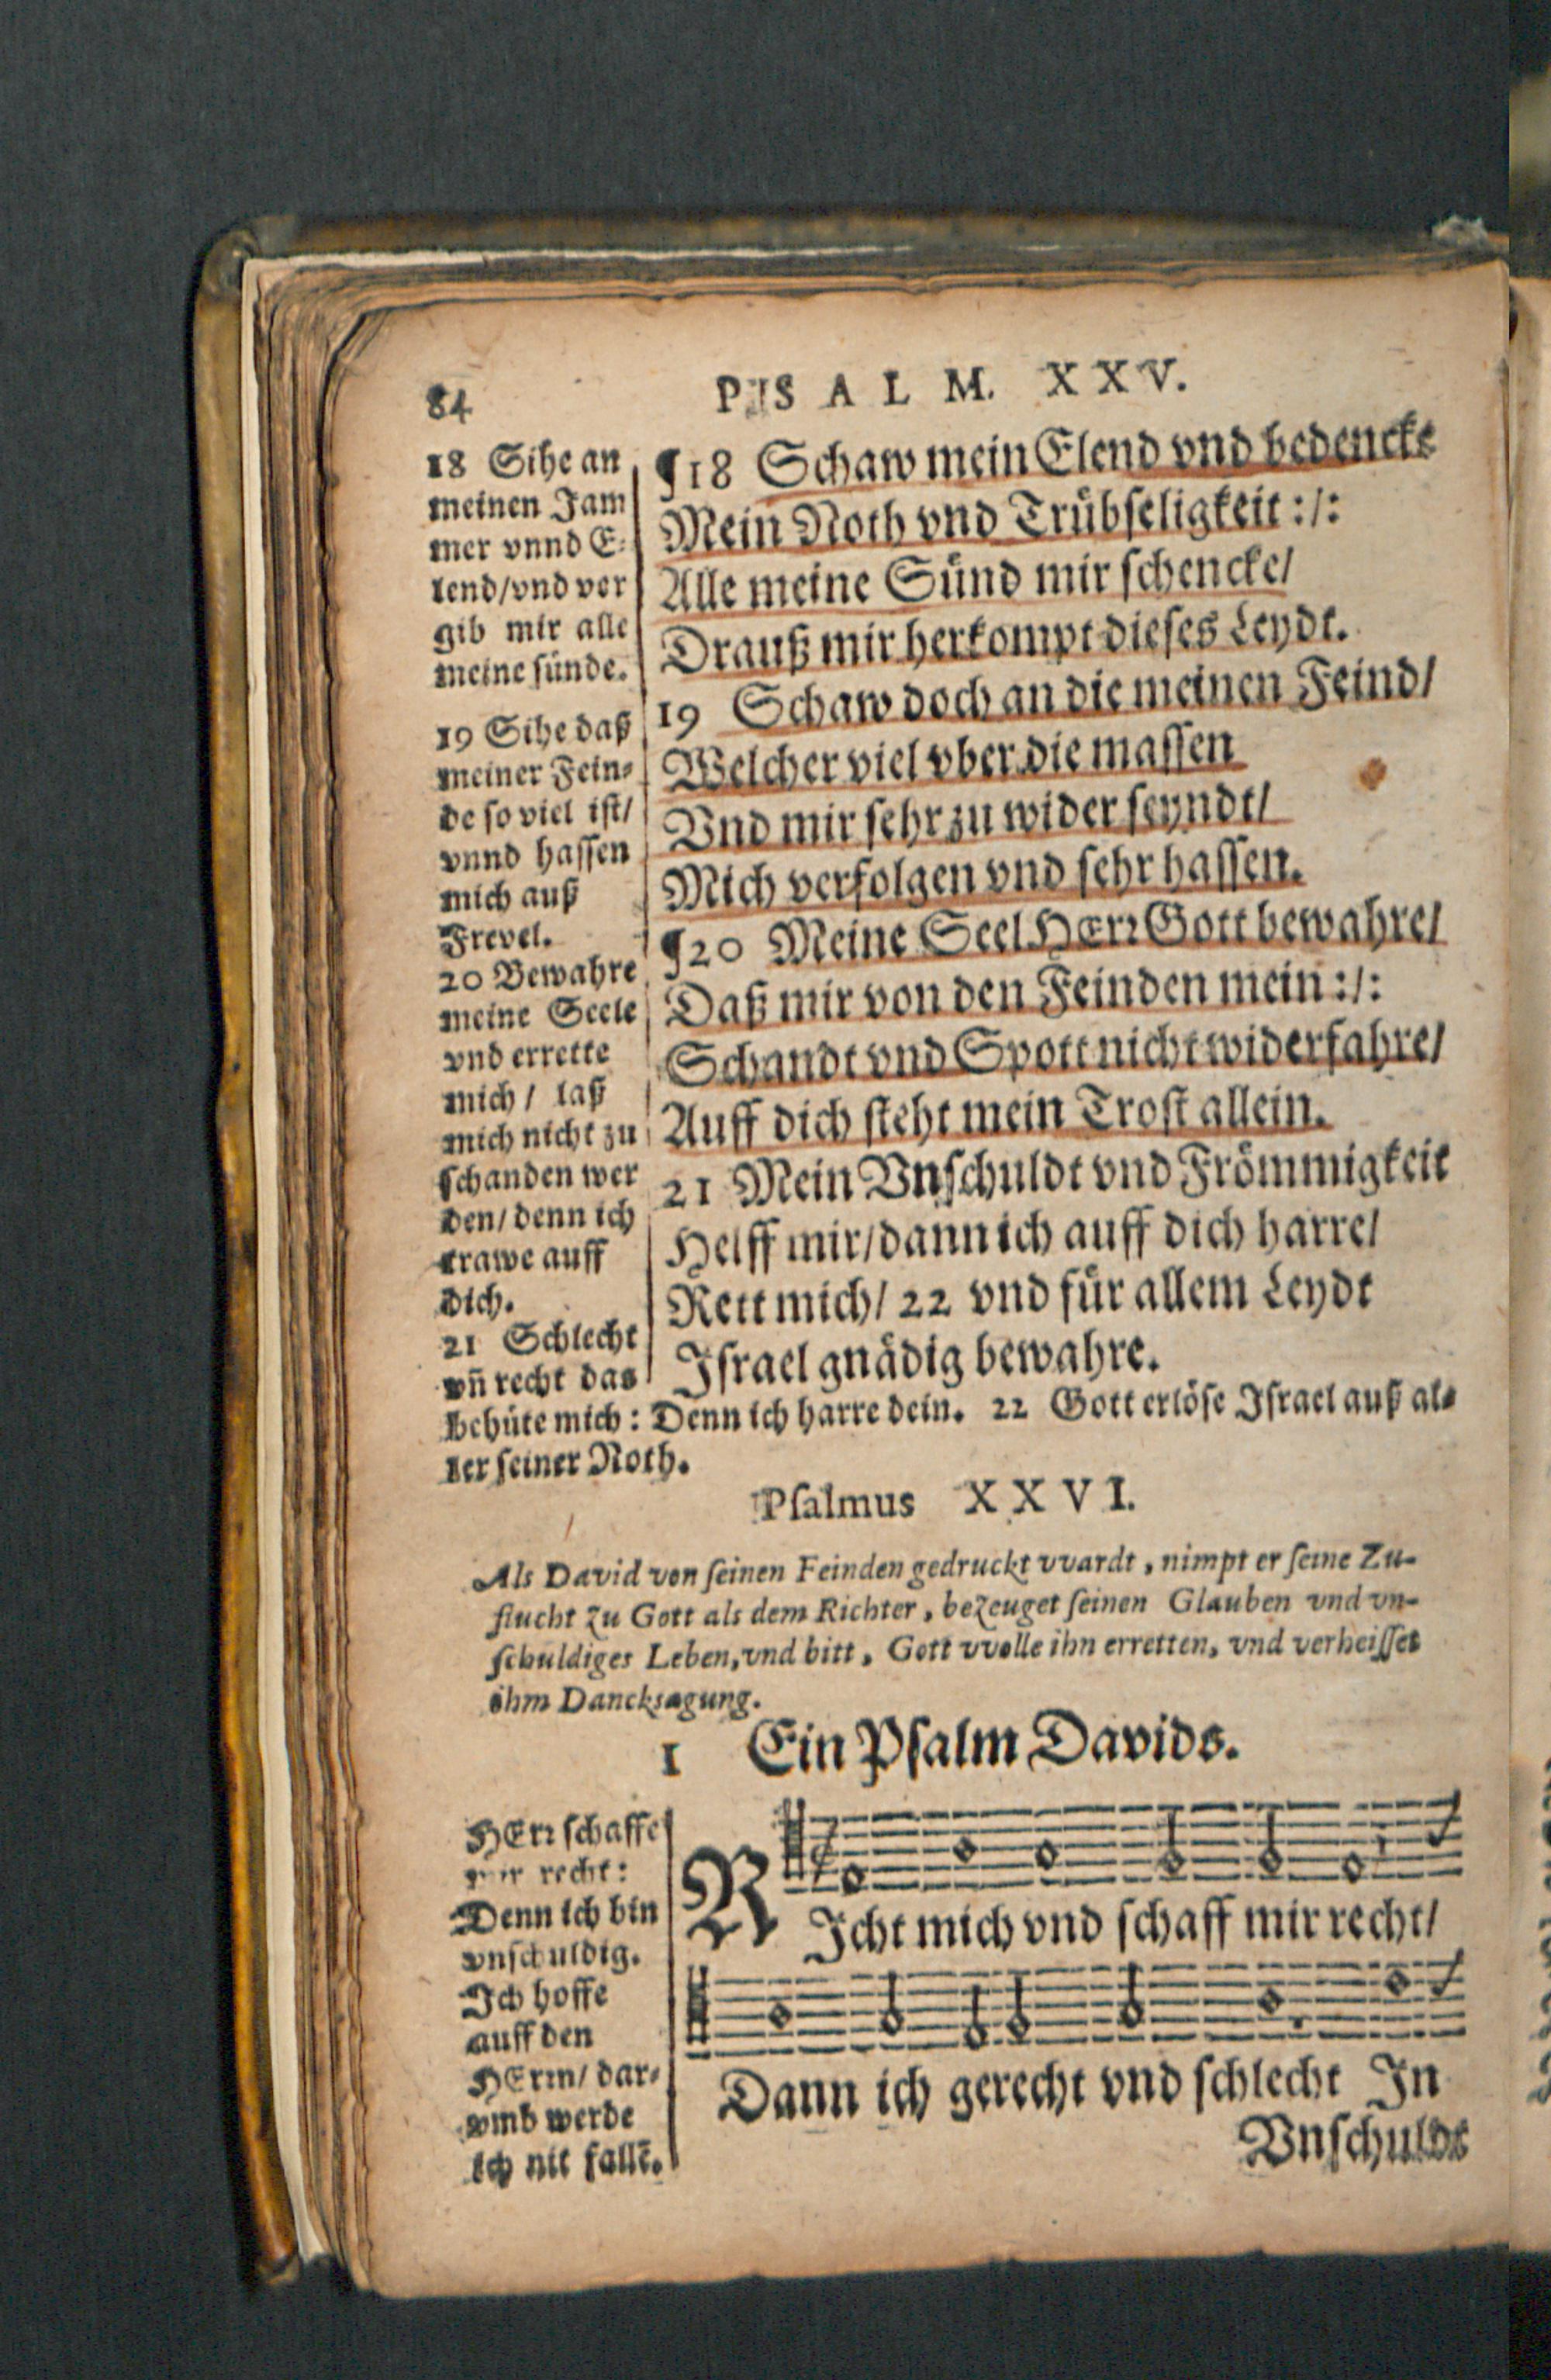 84
PSALM. XXV.
18 Sihe an
meinen Jam
mer vnnd E-
lend/vnd ver
gib mir alle
meine sünde.
19 Sihe daß
meiner Fein-
de so viel ist/
vnnd hassen
mich auß
Frevel.
20 Bewahre
meine Seele
vnd errette
mich/ laß
mich nicht zu
schanden wer
den/denn ich
trawe auff
dich.
21 Schlecht
vñ recht das
behüte mich: Denn ich harre dein. 22 Gott erlöse Israel auß al-
ler seiner Noth.
¶18 Schaw mein Elend vnd bedencke
Mein Noth vnd Trübseligkeit :/:
Alle meine Sünd mir schencke/
Drauß mir herkompt dieses Leydt.
19 Schaw doch an die meinen Feind/
Welcher viel vber die massen
Vnd mir sehr zu wider seyndt/
Mich verfolgen vnd sehr hassen.
¶20 Meine Seel HErr Gott bewahre/
Daß mir von den Feinden mein :/:
Schandt vnd Spott nicht widerfahre/
Auff dich steht mein Trost allein.
21 Mein Vnschuldt vnd Frömmigkeit
Helff mir/dann ich auff dich harre/
Rett mich/ 22 vnd für allem Leydt
Israel gnädig bewahre.
Psalmus XXVI.
Als David von seinen Feinden gedruckt vvardt, nimpt er seine Zu-
flucht zu Gott als dem Richter, bezeuget seinen Glauben vnd vn-
schuldiges Leben, vnd bitt, Gott vvolle ihn erretten, vnd verheisset
ihm Dancksagung.
1 Ein Psalm Davids.
HErr schaffe
mir recht:
Denn ich bin
vnschuldig.
Ich hoffe
auff den
HErrn/ dar-
vmb werde
ich nit fallē.
RIcht mich vnd schaff mir recht/
Dann ich gerecht vnd schlecht In
Vnschuldt